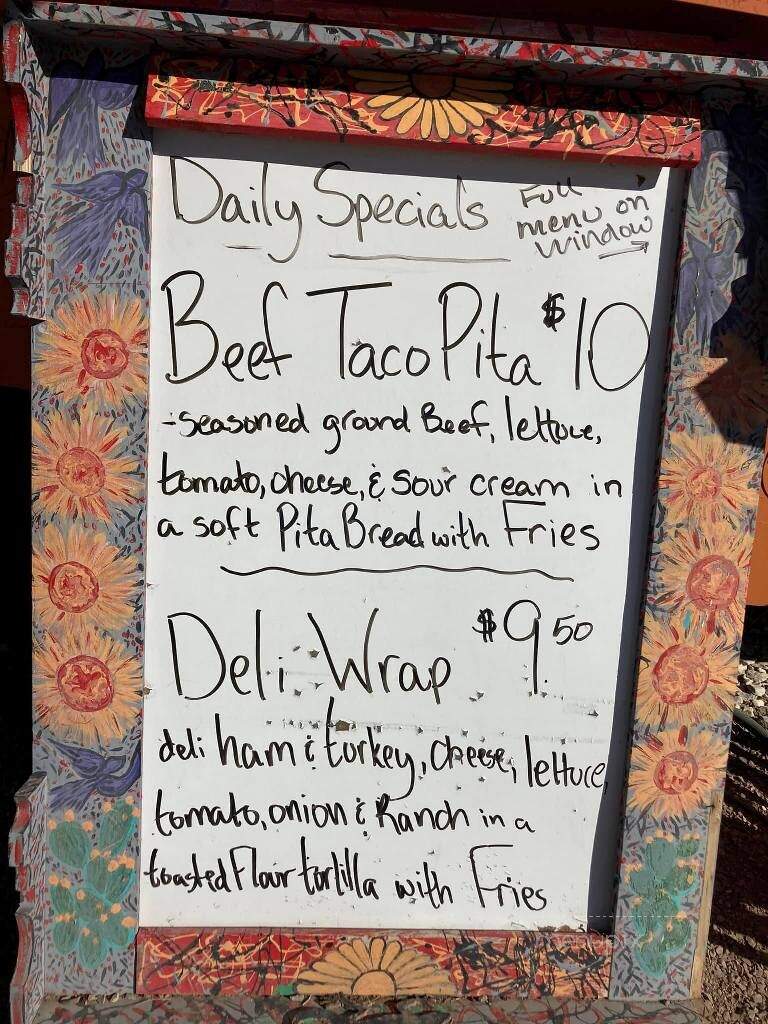 Daily Specials
Full
menu on
window
Beef Taco Pita $10
-seasoned ground Beef, lettuce,
tomato, cheese, & sour cream in
a soft Pita Bread with Fries
Deli Wrap $9.50
deli ham & turkey, cheese, lettuce,
tomato, onion & Ranch in a
toasted Flour tortilla with Fries